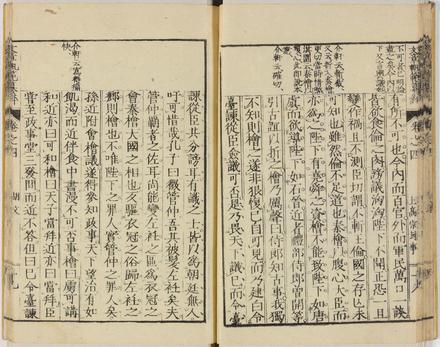 有所不可也今內而百官外而軍民萬口一談
皆欲食倫之肉謗議洶洶陛下不聞正恐一旦
變作禍且不測臣切謂不斬王倫國之存亡未
可知也雖然倫不足道也秦檜以腹心大臣而
亦為之陛下有堯舜之資檜不能致陛下如唐
虞而欲導陛下如石晉近者禮部侍郎曾開等
引古誼以折之檜乃厲聲曰侍郎知古事我獨
不知則檜之遂非狠愎已自可見而乃建白令
臺諫從臣僉議可否是乃畏天下議已而令臺
諫從臣共分謗耳有識之士皆以為朝廷無人
吁可惜哉孔子曰微管仲吾其被髮左衽矣夫
管仲霸者之佐耳尚能變左衽之區為衣冠之
會秦檜大國之相也反驅衣冠之俗歸左衽之
鄉則檜也不唯陛下之罪人實管仲之罪人矣
孫近附會檜議遂得參知政事天下望治有如
飢渴而近伴食中書漫不可否事檜曰虜可講
和近亦曰可和檜曰天子當拜近亦曰當拜臣
嘗至政事堂三發問而近不答但曰已令臺諫
介軒云確切